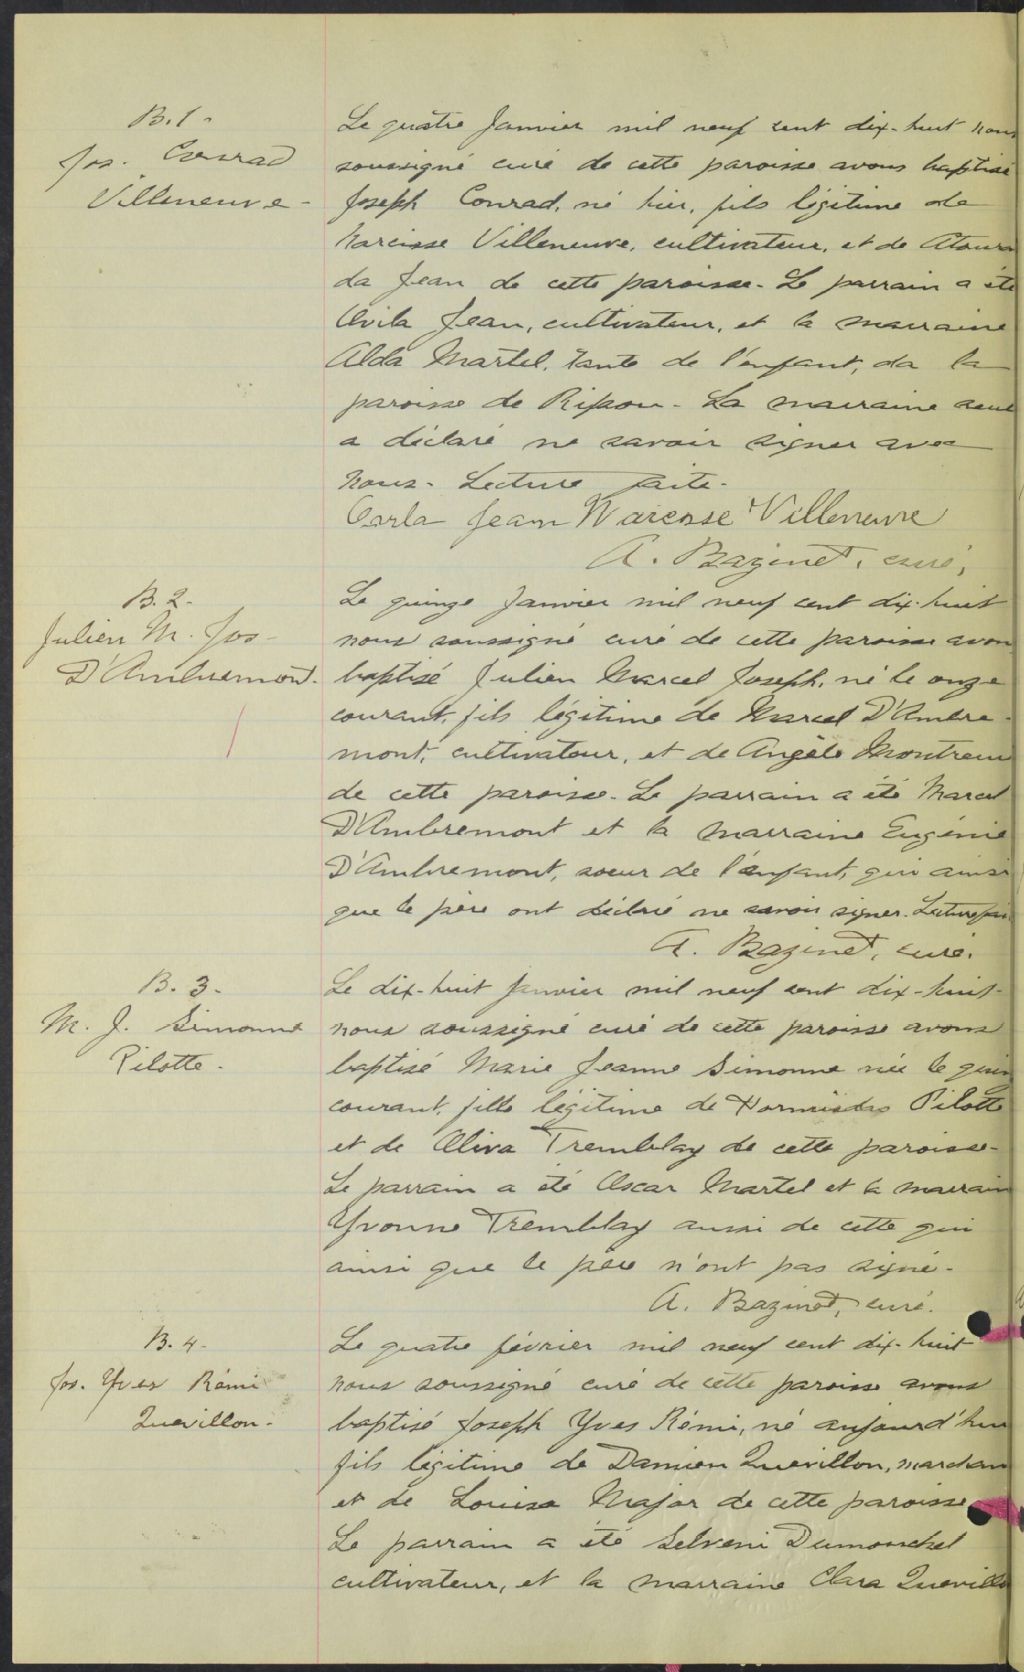 B. 1 -
Jos. Conrad
Villeneuve -
Le quatre Janvier mil neuf cent dix-huit nous
soussigné curé de cette paroisse avons baptisé
Joseph Conrad, né hier, fils légitime de
Narcisse Villeneuve, cultivateur, et de
da Jean de cette paroisse. Le parrain a été
Ovila Jean, cultivateur, et la marraine
Alda Martel, tante de l'enfant, da la
paroisse de Ripon - La marraine seule
a déclaré ne savoir signer avec
nous. Lecture faite.
Jean Narcisse Villeneuve
A. Bazinet, curé,
B. 2 -
Julien M. Jos -
D'Ambremont.
Le quinze Janvier mil neuf cent dix-huit
nous soussigné curé de cette paroisse avon
baptisé Julien Marcel Joseph, né le onze
courant, fils légitime de Marcel D'Ambre-
mont, cultivateur, et de Angèle Montreui
de cette paroisse. Le parrain a été Marcel
D'Ambremont et la marraine Eugénie
D'Ambremont, soeur de l'enfant, qui ainsi
que le père ont déclaré ne savoir signer. Lecture fai
A. Bazinet, curé.
B. 3 -
M. J. Simonne
Pilotte -
Le dix-huit Janvier mil neuf cent dix-huit-
nous soussigné curé de cette paroisse avons
baptisé Marie Jeanne Simonne née le quin
courant, fille légitime de Hormisdas Pilotte
et de Oliva Tremblay de cette paroisse -
Le parrain a été Oscar Martel et la marrain
Yvonne Tremblay aussi de cette qui
ainsi que le père n'ont pas signé -
A. Bazinet, curé.
B. 4 -
Jos. Yves Rémi
Quevillon -
Le quatre février mil neuf cent dix-huit
nous soussigné curé de cette paroisse avons
baptisé Joseph Yves Rémi, né aujourd'hui
fils légitime de Damien Quevillon, marchan
et de Louisa Major de cette paroisse
Le parrain a été Selveni Dumouchel
cultivateur, et la marraine Clara Quevillo